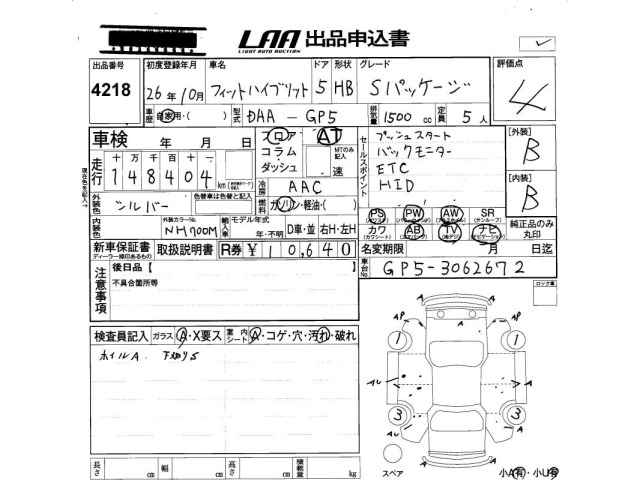 LAA 出品申込書
LIGHT AUTO AUCTION
出品番号 初度登録年月 車名 ドア 形状 グレード 評価点
4218 26年10月 フィットハイブリット 5 HB Sパッケージ 4
車歴 自家用・( ) 型式 DAA-GP5 排気量 1500 cc 定員 5人
車検 年 月 日 フロア AT セールスポイント プッシュスタート [外装]
コラム・ MTのみ記入 バックモニター B
走行 十万千百十一 ダッシュ 速 ETC
148404 km 冷房 AAC HID [内装]
外装色 シルバー 色替車は色替と記入 燃料 ガソリン・軽油・( ) B
PS PW AW SR 純正品のみ
外装カラーNo. モデル年式 カワ AB TV ナビ 丸印
NH700M 輸入車 年・不明 D車・並 右H・左H
新車保証書 取扱説明書 R券 ¥10,640 名変期限 月 日迄
ディーラー様印あるもの 車台No. GP5-3062672
注意事項 後日品【 】 ロック車
不具合箇所等
検査員記入 ガラス A・X要ス 室内シート A・コゲ・穴・汚れ・破れ
ホイルA 下回りS
AP A AP
1 1
AU A
3 3
AU A A
長さ cm 幅 cm 高さ cm 積載量 kg スペア 小A有・小U有